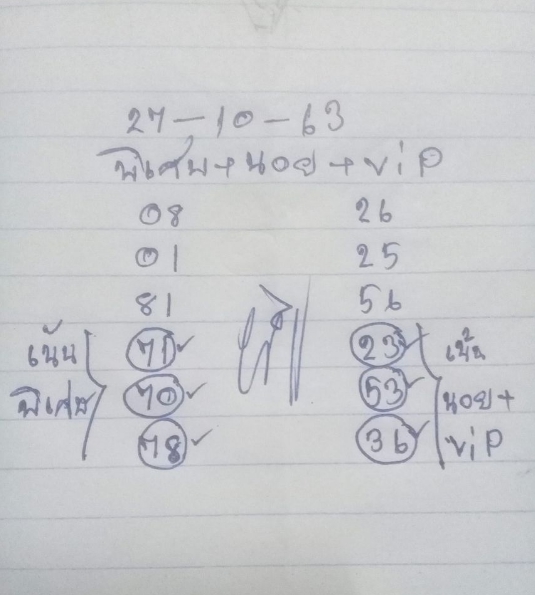 27-10-63
พิเศษ+นอย+vip
08 26
01 25
81 56
เน้น 71 23 เน้น
พิเศษ 70 53 นอย+
78 36 vip